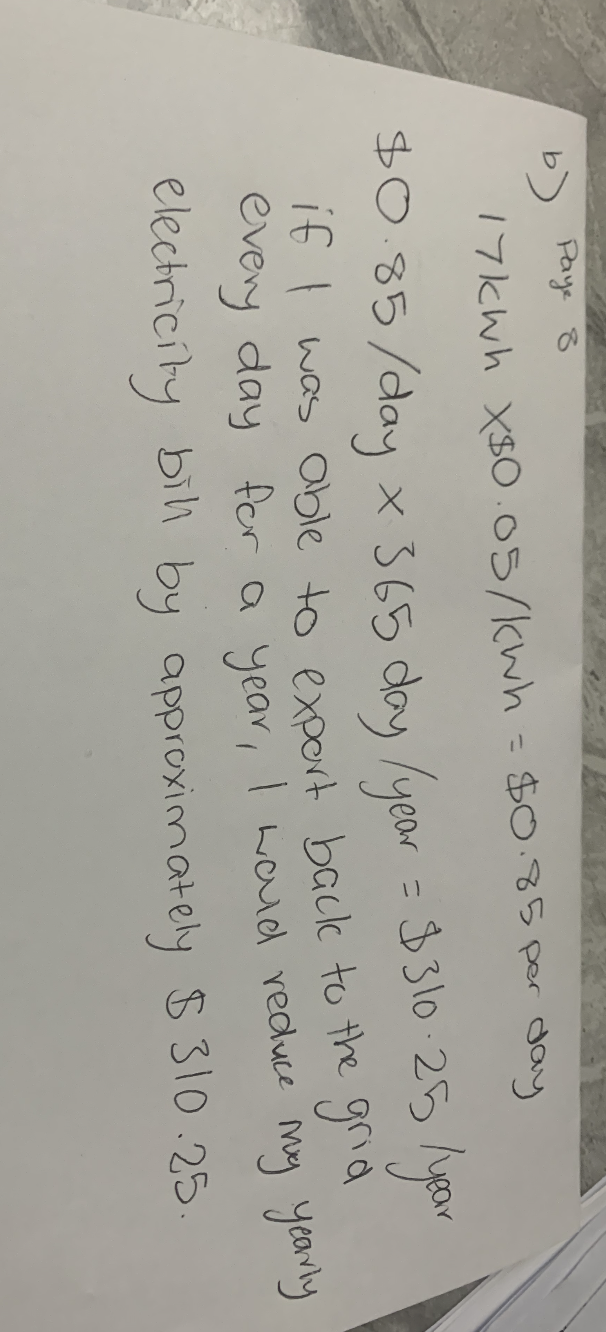 b) Page 8
17kwh x$0.05/kwh = $0.85 per day
$0.85/day x 365 day/year = $310.25/year
if I was able to export back to the grid
every day for a year, I would reduce my yearly
electricity bill by approximately $310.25.